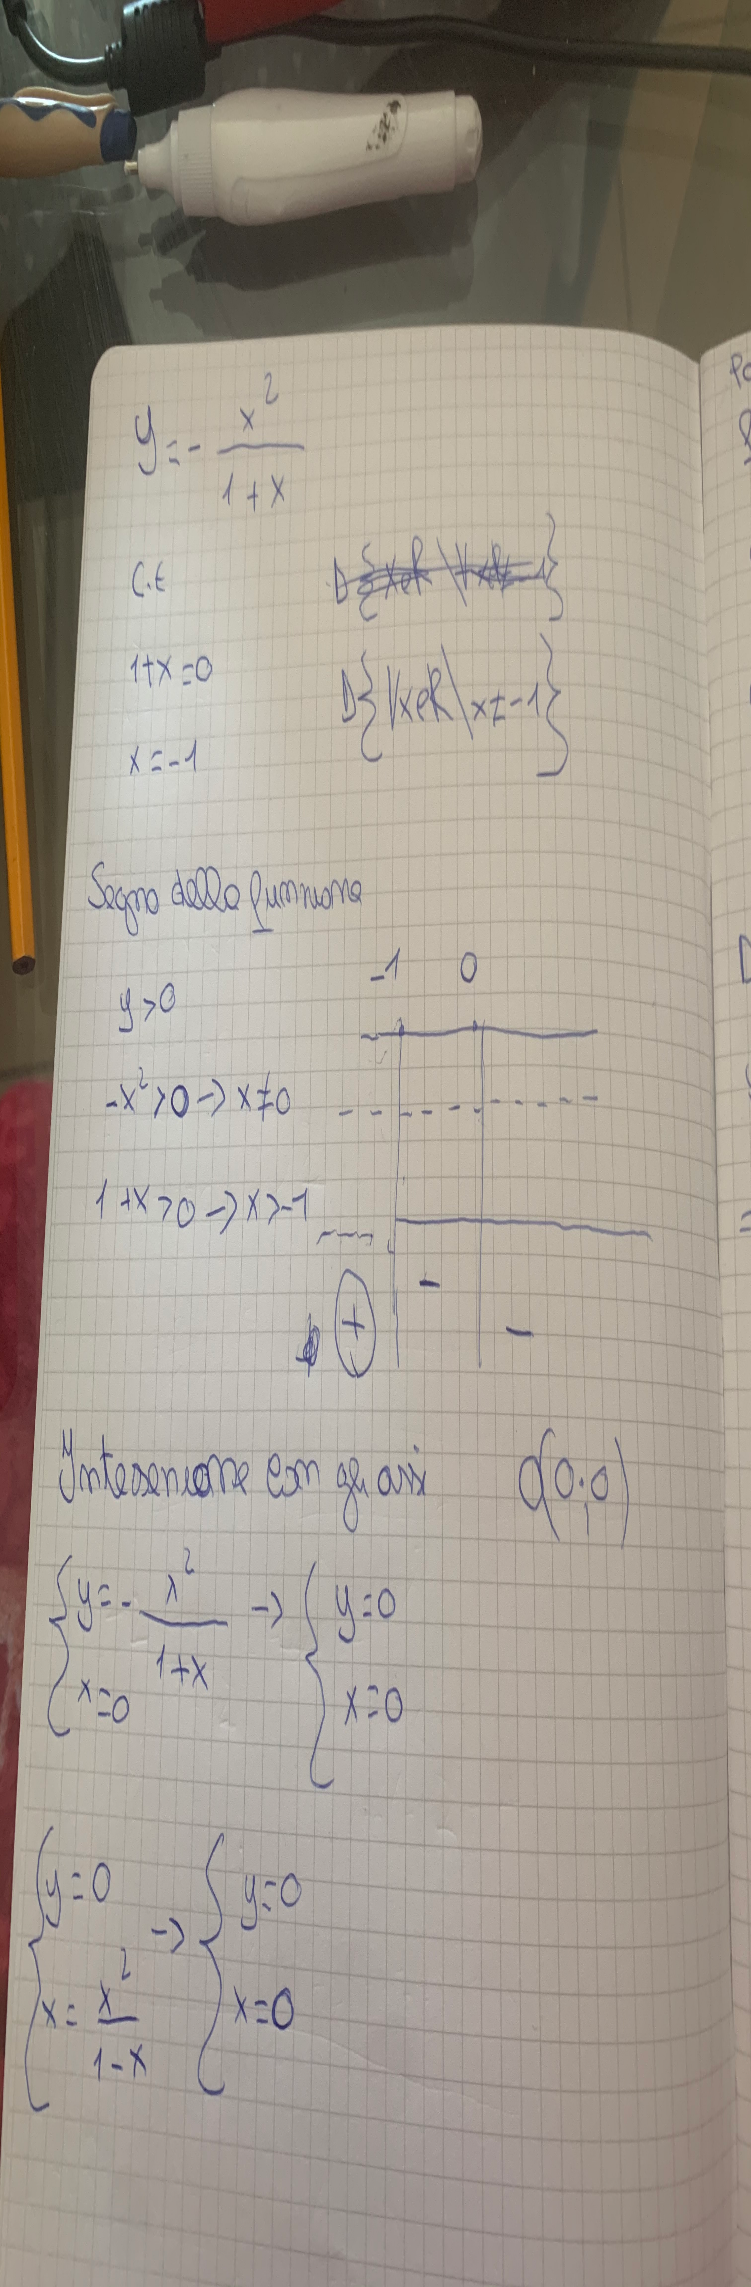 y = - x² / 1+x
C.E
1+x=0
D{∀x∈R \ x≠-1}
x=-1
Segno della funzione
-1 0
y>0
-x²>0 → x≠0
1+x>0 → x>-1
+ - -
Intersezione con gli assi O(0;0)
{ y = - x² / 1+x → { y=0
x=0 x=0
{ y=0 → { y=0
x = x² / 1-x x=0